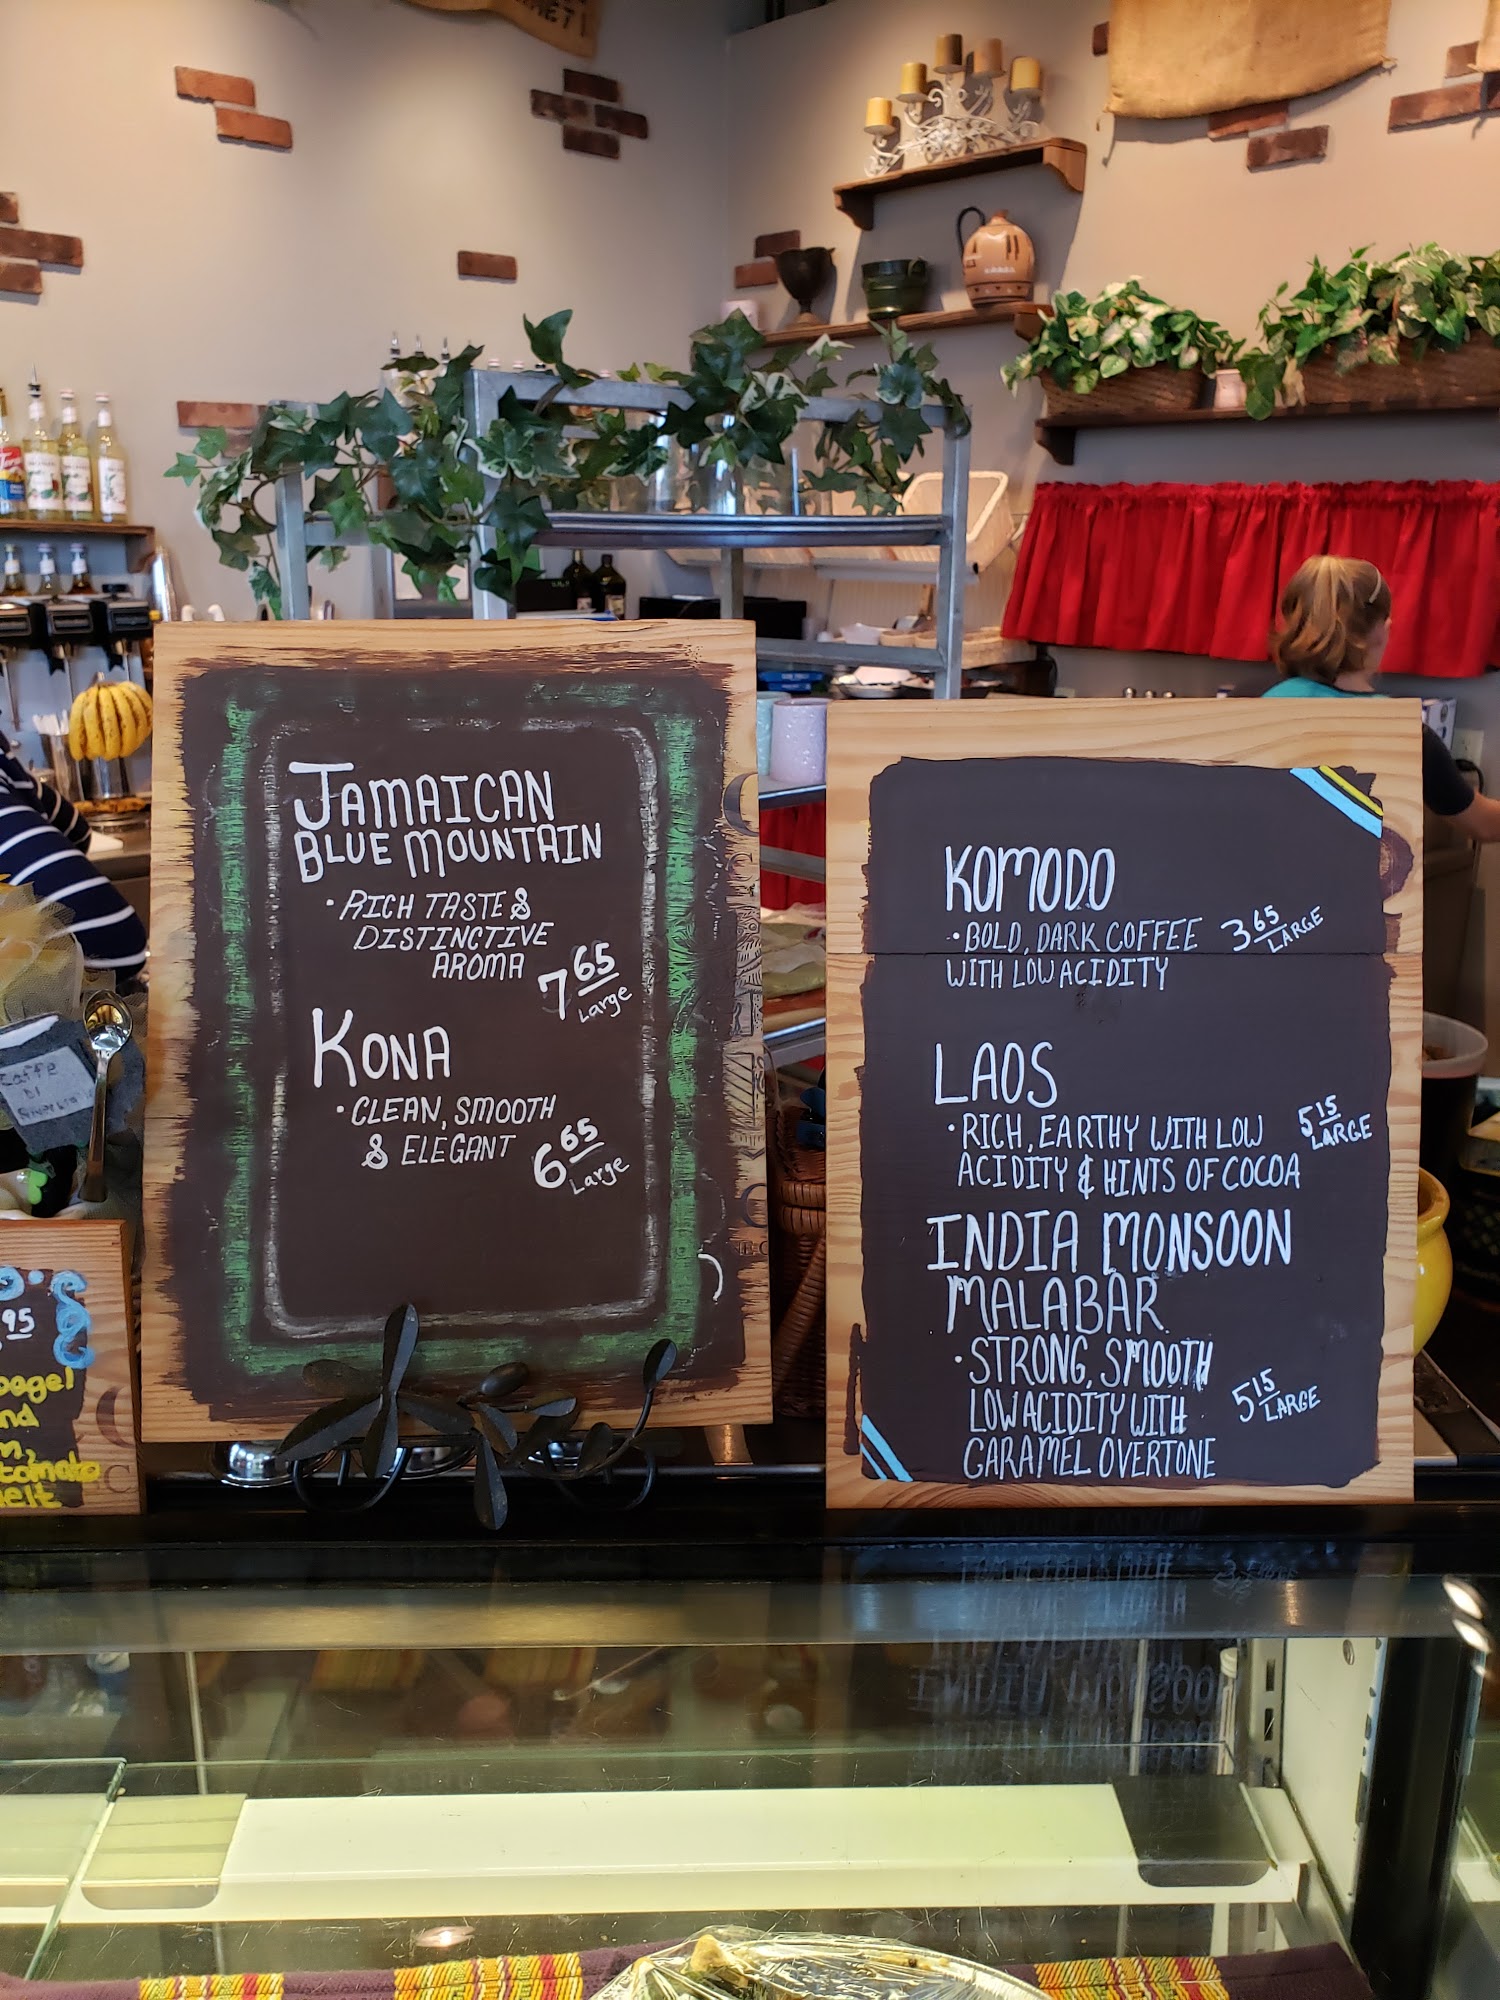 JAMAICAN
BLUE MOUNTAIN
• RICH TASTE &
DISTINCTIVE
AROMA
7 65
Large
KONA
• CLEAN, SMOOTH
& ELEGANT
6 65
Large
KOMODO
• BOLD, DARK COFFEE
WITH LOW ACIDITY
3 65
LARGE
LAOS
• RICH, EARTHY WITH LOW
ACIDITY & HINTS OF COCOA
5 15
LARGE
INDIA MONSOON
MALABAR
• STRONG, SMOOTH
LOW ACIDITY WITH
CARAMEL OVERTONE
5 15
LARGE
95